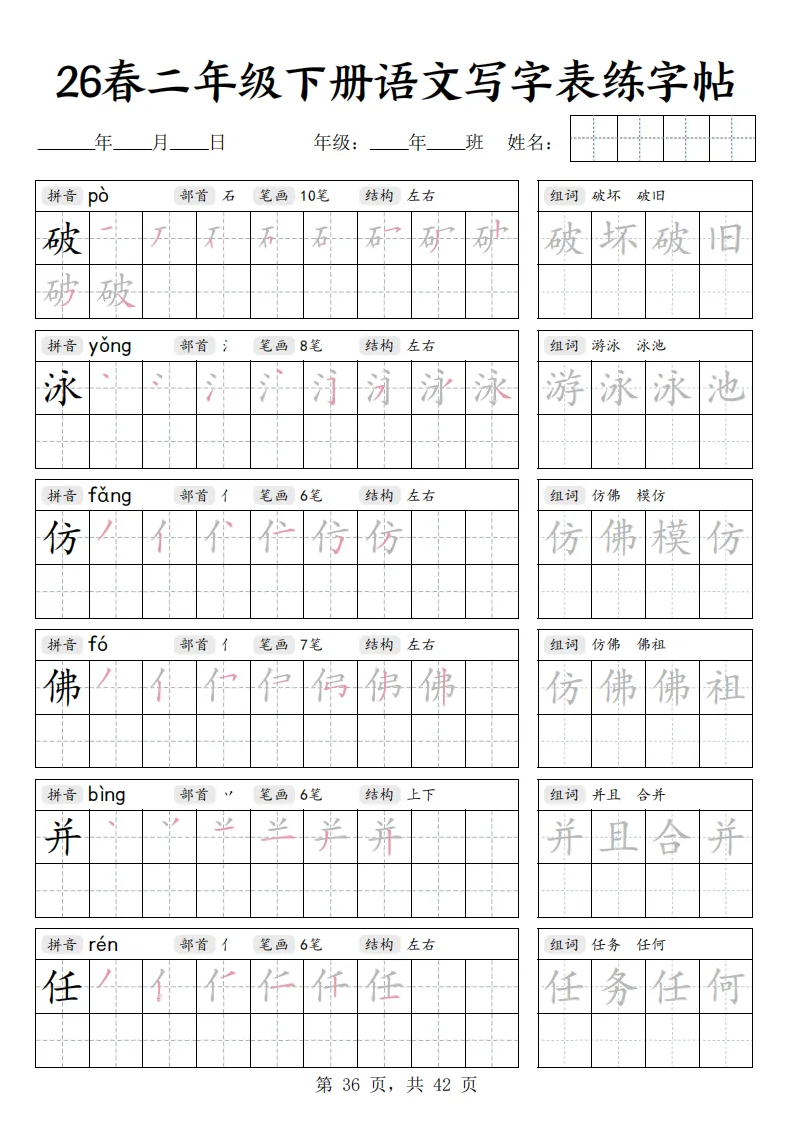 26春二年级下册语文写字表练字帖
年 月 日 年级： 年 班 姓名：
拼音 pò 部首 石 笔画 10笔 结构 左右 组词 破坏 破旧
破 破坏破旧
破
拼音 yǒng 部首 氵 笔画 8笔 结构 左右 组词 游泳 泳池
泳 游泳泳池
拼音 fǎng 部首 亻 笔画 6笔 结构 左右 组词 仿佛 模仿
仿 仿 仿佛模仿
拼音 fó 部首 亻 笔画 7笔 结构 左右 组词 仿佛 佛祖
佛 佛 仿佛佛祖
拼音 bìng 部首 丷 笔画 6笔 结构 上下 组词 并且 合并
并 并 并且合并
拼音 rén 部首 亻 笔画 6笔 结构 左右 组词 任务 任何
任 任 任务任何
第 36 页，共 42 页